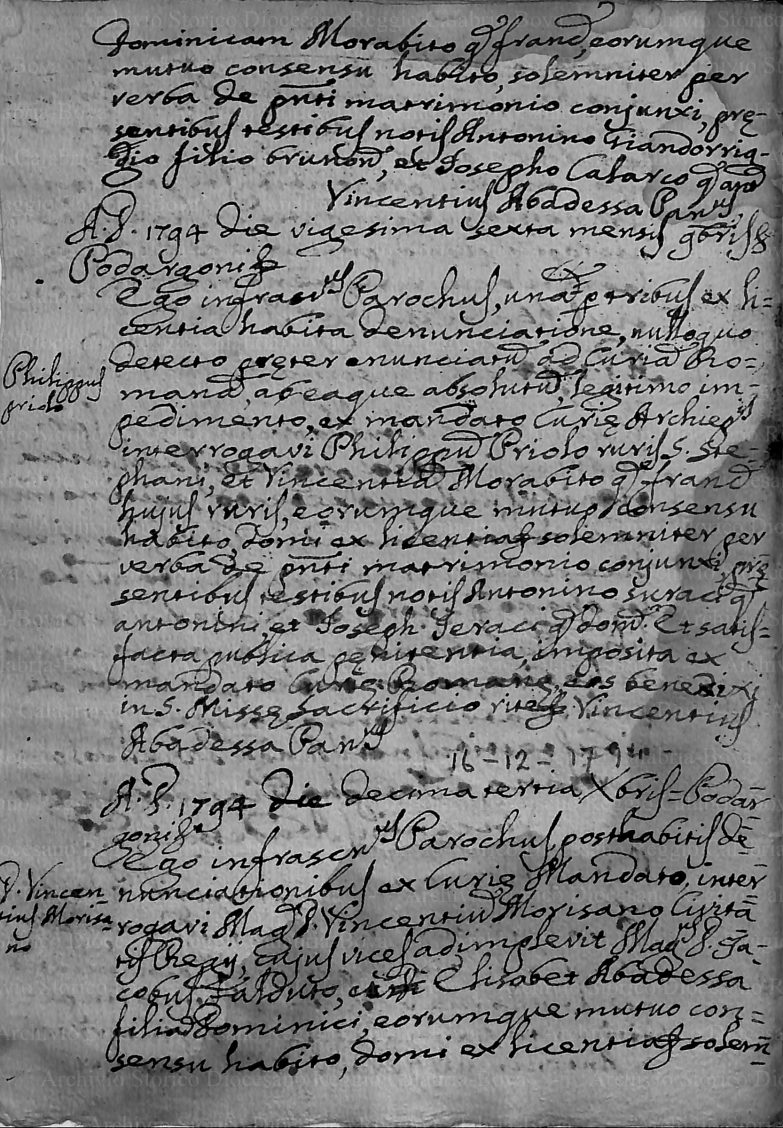 Dominicam Morabito qd. Francd, eorumque
mutuo consensu habito, solemniter per
verba de pnti matrimonio conjunxi, prę-
sentibus testibus notis Antonino Giandorrig-
gio filio brunond, et Josepho Calarco qd.
Vincentius Abadessa Parus
A.D. 1794 die vigesima sexta mensis 9bris
Podargonij
Ego infrascrus Parochus, una p tribus ex li=
centia habita denunciatione, nulloquo
detecto pręter enunciatū ad Curiā Ro=
manā, ab eaque absolutū, legitimo im-
pedimento, ex mandato Curię Archiepis
interrogavi Philippū Priolo ruris S. Ste-
phani, et Vincentiā Morabito qd. francd
hujus ruris, eorumque mutuo consensu
habito, domi ex licentia solemniter per
verba de pnti matrimonio conjunxi, prę
sentibus testibus notis Antonino Suraci qd
antonini, et Joseph Jeraci qd domci. Et satis-
facta publica pęnitentia, imposita ex
mandato Curię Romanę, eos benedixi
in S. Missę sacrificio rite Vincentius
Abadessa Parus
16-12-1794
A.D. 1794 die decima tertia Xbris= Podar=
gonij
Ego infrascrus Parochus posthabitis de=
nunciationibus ex Curię Mandato, inter
rogavi Magd. D. Vincentiū Morisano Civitā
tis Regij, cujus vices adimplevit Magcus D. Ja-
cobus Falduto, Elisabet Abadessa
filiā Dominici, eorumque mutuo con=
sensu habito, domi ex licentia solem=
Philippus
priolo
D. Vincen-
tius Morisa-
no